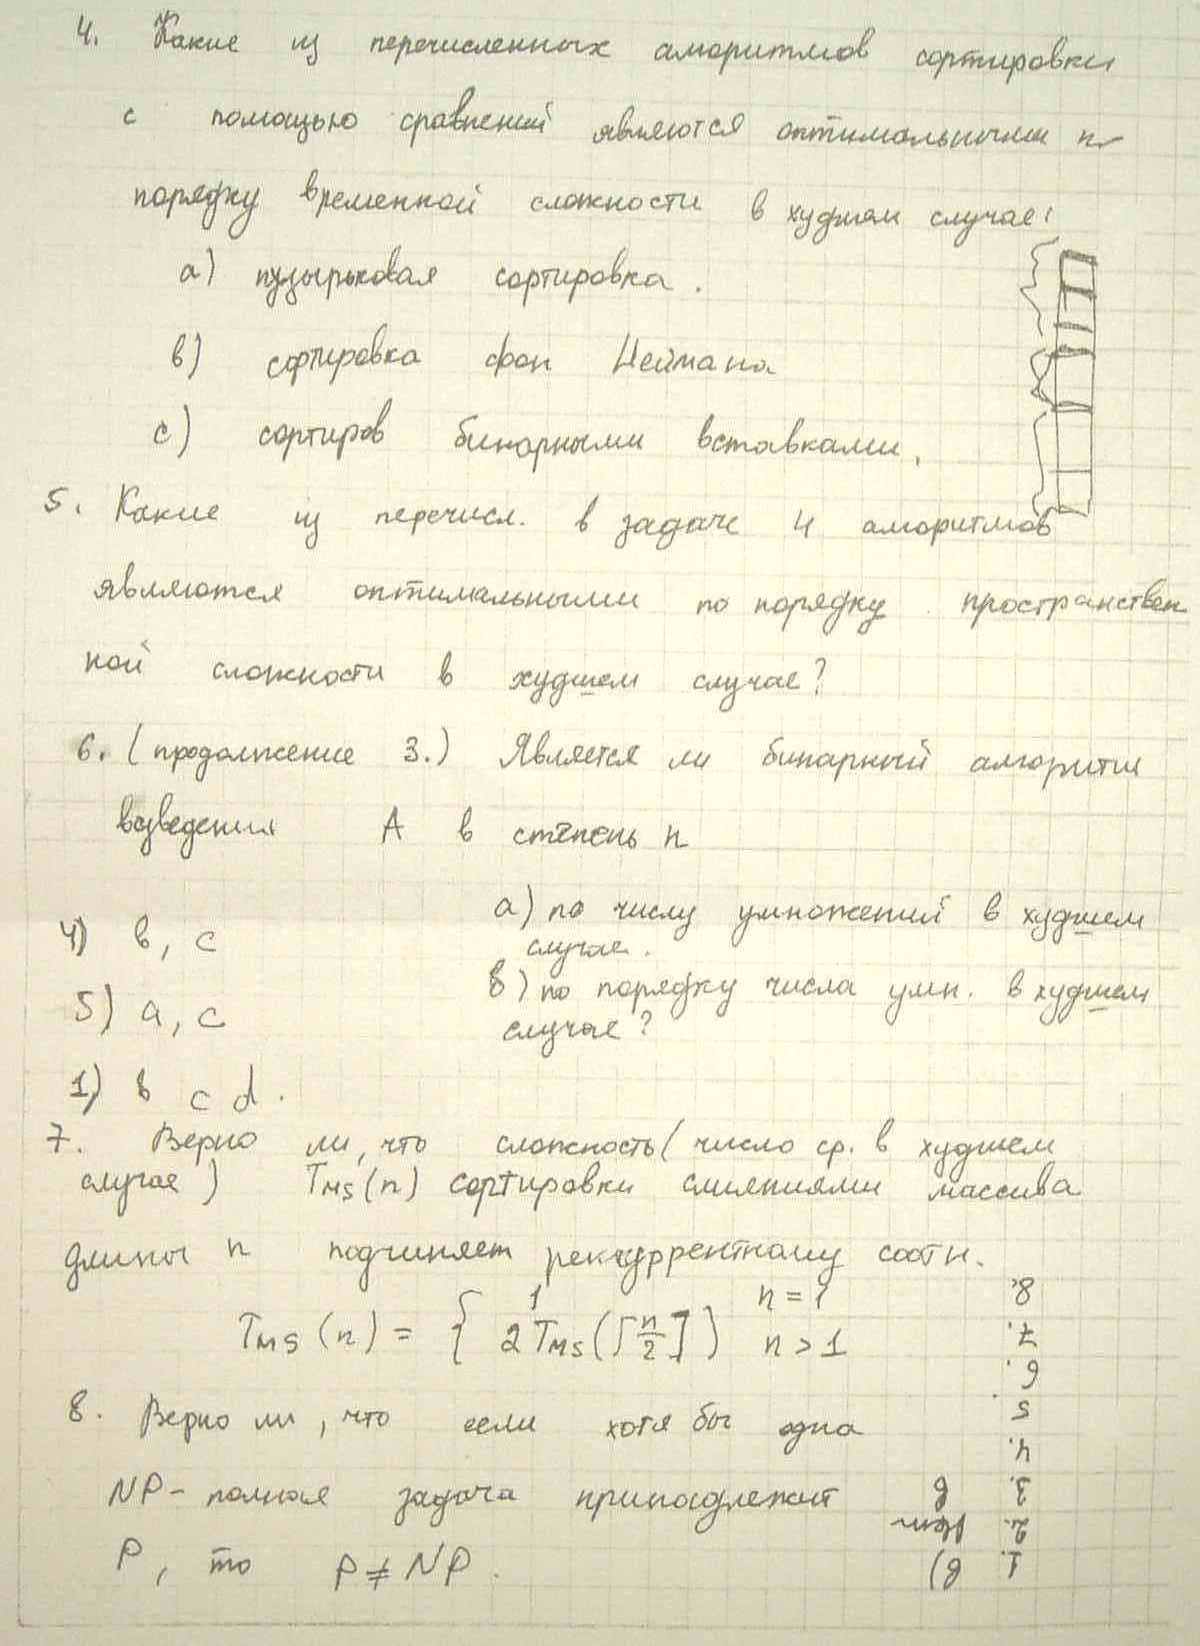 4. Какие из перечисленных алгоритмов сортировки
с помощью сравнений являются оптимальными п
порядку временной сложности в худшем случае:
a) пузырьковая сортировка.
в) сортировка фон Неймана
с) сортиров бинарными вставками.
5. Какие из перечисл. в задаче 4 алгоритмов
являются оптимальными по порядку пространствен
ной сложности в худшем случае?
6. (продолжение 3.) Является ли бинарный алгоритм
возведения A в степень n
a) по числу умножений в худшем
случае.
в) по порядку числа умн. в худшем
случае?
4) в, с
5) a, c
1) в c d.
7. Верно ли, что сложность (число ср. в худшем
случае) TMS(n) сортировки слияниями массива
длины n подчиняет рекуррентному соотн.
TMS(n) = { 1 n = 1
2 TMS(⌈n/2⌉) n > 1
8. Верно ли, что если хотя бы одна
NP-полная задача принадлежит
P, то P ≠ NP.
1. в)
2.
3. в
4.
5
6.
7.
8.